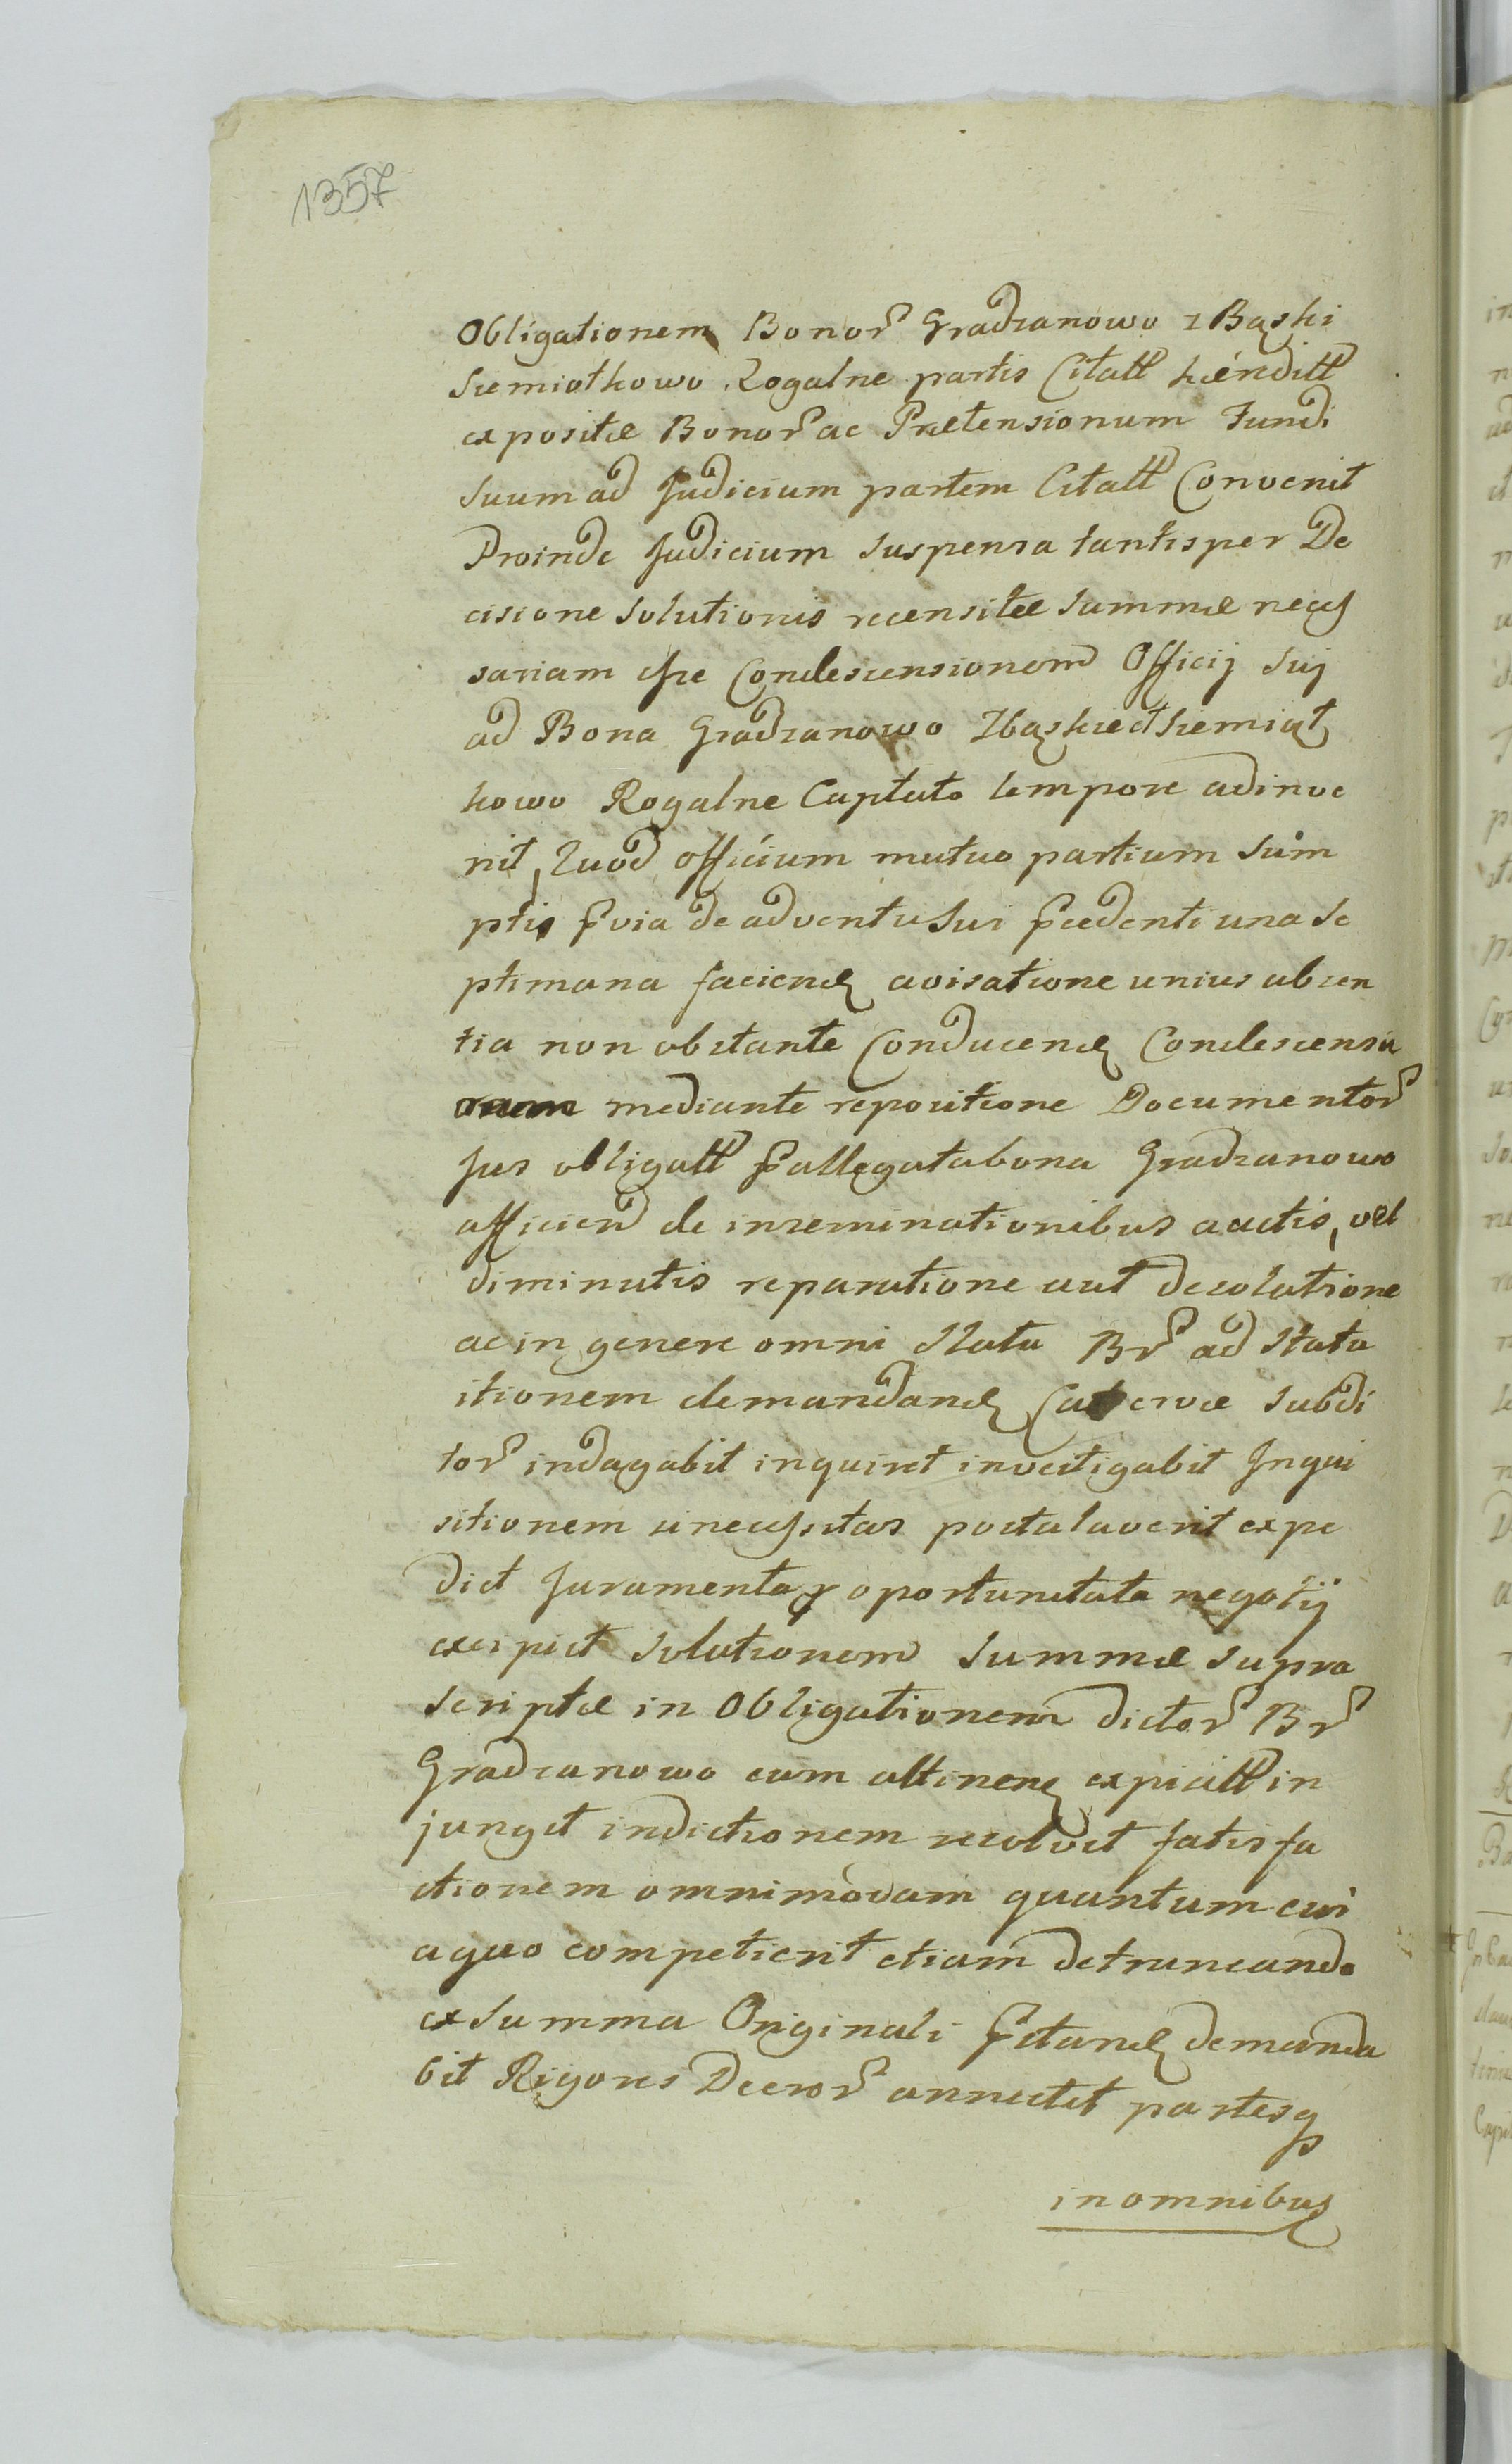 1357
Obligationem Bonor Gradzanowo z Bąski
Siemiotkowo Rogalne partis Citatt
expositæ Bonor ac Prætensionum Fundi
suum ad Judicium partem Citatt Convenit
Proinde Judicium suspensa tantisper De
cisione solutionis recensitæ summæ neces
sariam esse Condescensionem Officij sui
ad Bona Gradzanowo Zbąskie et Siemiąt
kowo Rogalne Captato tempore adinve
nit, Quod officium mutuo partium sum
ptis pvia de adventu sui pcedenti una se
ptimana faciend avisatione unius absen
tia non obstante Conducend Condescensio
mediante repositione Documentor
Jus obligatt pallegata bona Gradzanowo
afficien de inseminationibus auctis, vel
diminutis reparatione aut desolatione
ac in genere omni statu Br ad statu
itionem demandand Catervæ subdi
tor indagabit inquiret investigabit Inqui
sitionem si necessitas postulaverit expe
diet Juramenta p oportunitate negotij
excipiet solutionem summæ supra
scriptæ in Obligationem dictor Br
Gradzanowo cum attinen expiatt in
junget indictionem resolvet satisfa
ctionem omnimodam quantum cui
a quo competierit etiam detruncando
ex summa Originali pstand demanda
bit Rigores Decror annectet partesq
in omnibus